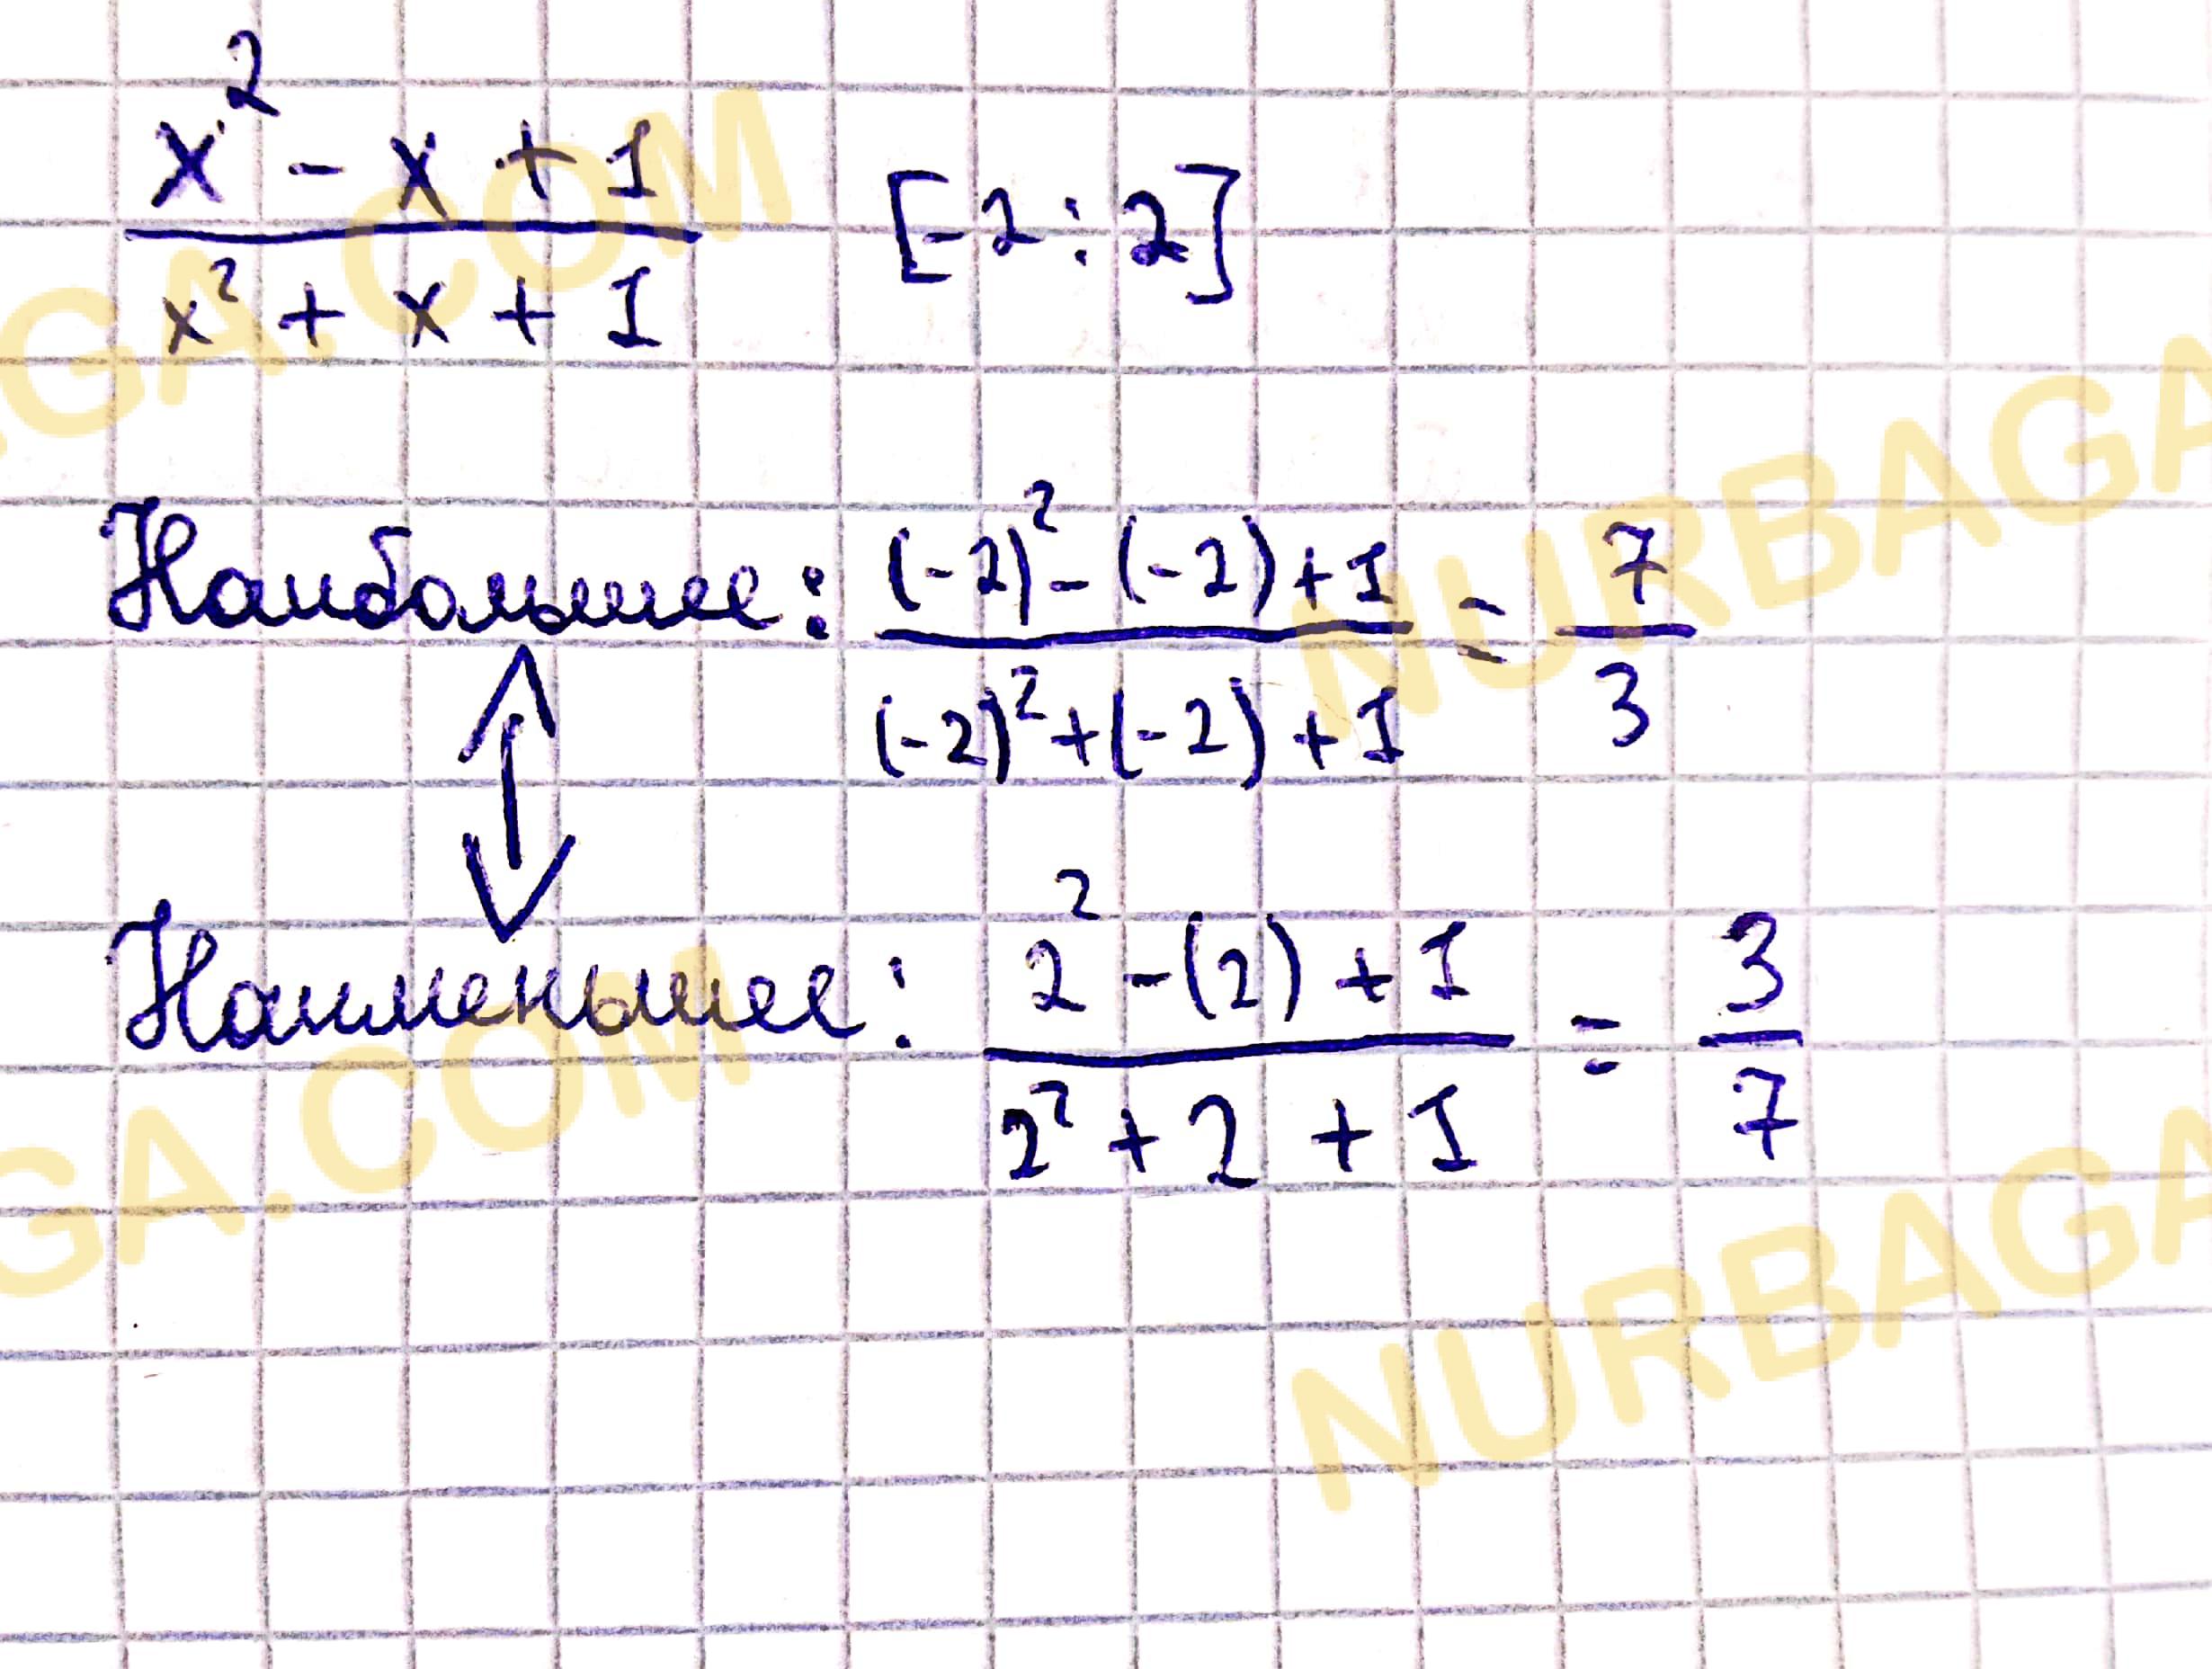 x² - x + 1
x² + x + 1
[-2 : 2]
Наибольшее: (-2)² - (-2) + 1 / (-2)² + (-2) + 1 = 7/3
Наименьшее: 2² - (2) + 1 / 2² + 2 + 1 = 3/7
GA.COM
NURBAGA
GA.COM
NURBAGA